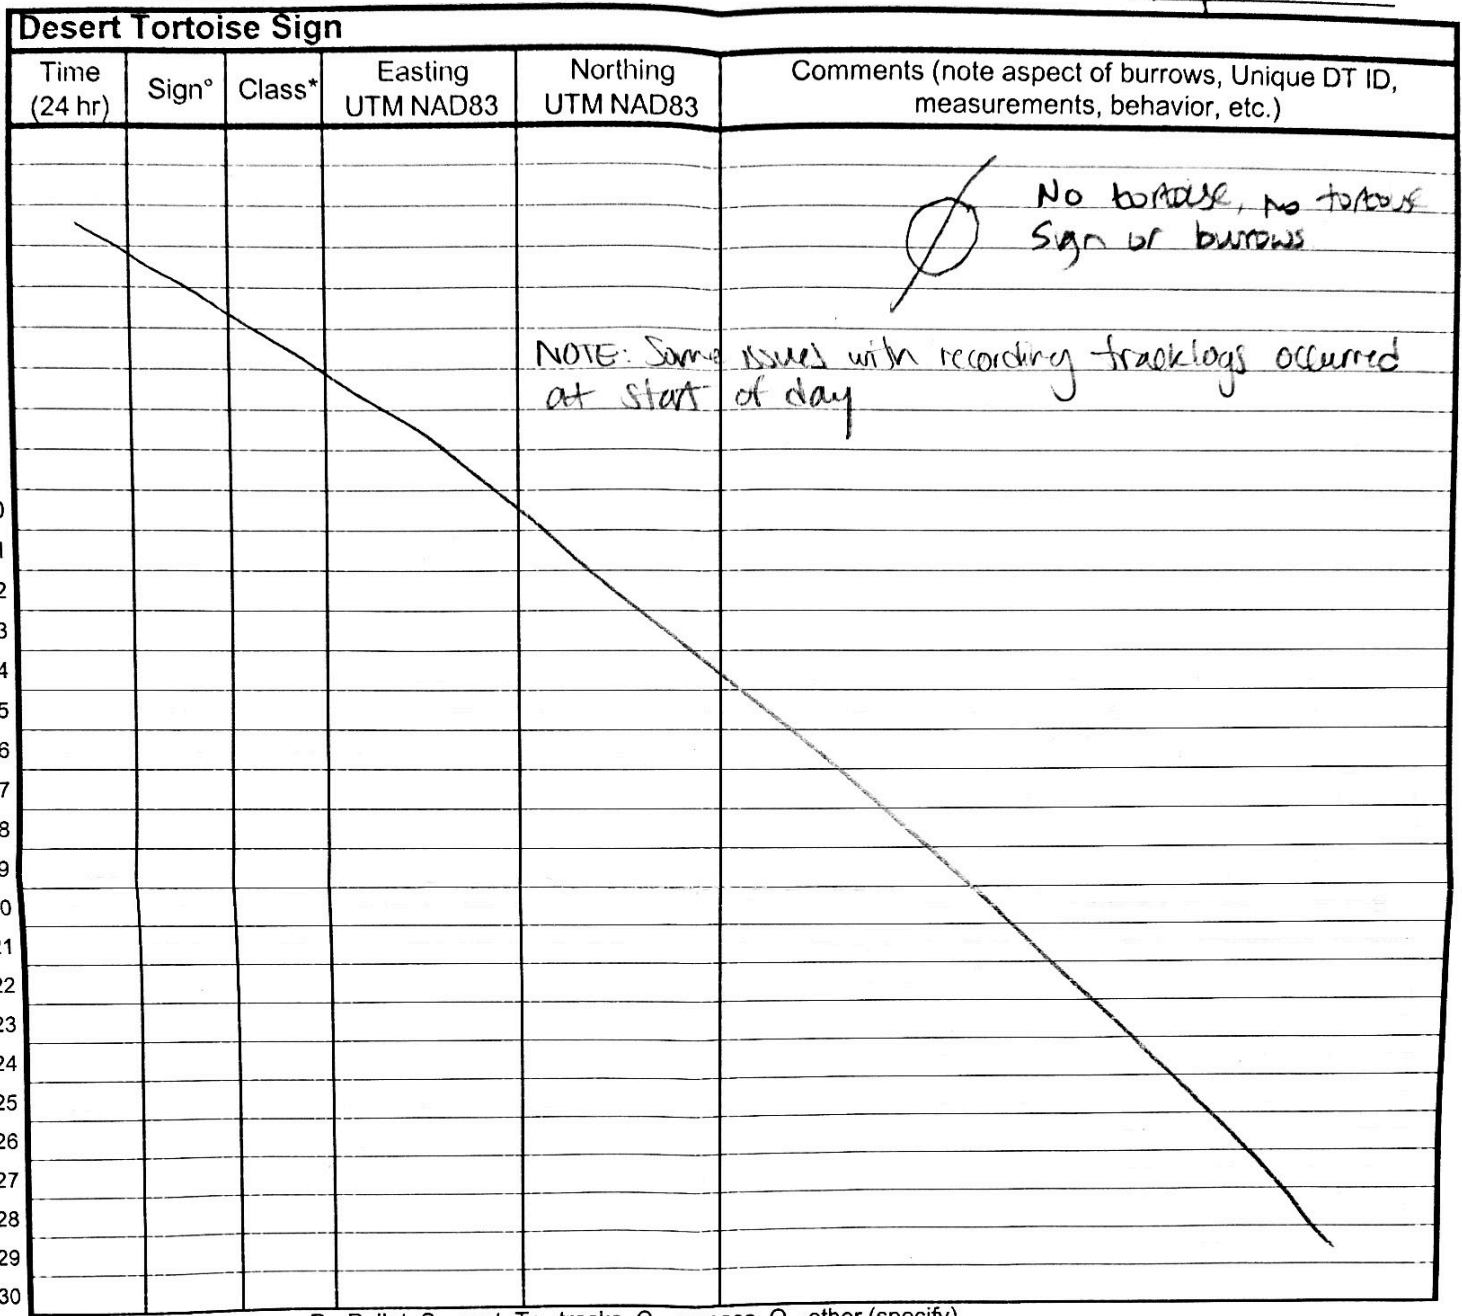 Desert Tortoise Sign
Time
(24 hr)
Sign°
Class*
Easting
UTM NAD83
Northing
UTM NAD83
Comments (note aspect of burrows, Unique DT ID,
measurements, behavior, etc.)
∅ No tortoise, no tortoise
sign or burrows
NOTE: Some issues with recording tracklogs occurred
at start of day
0
1
2
3
4
5
6
7
8
9
0
21
22
23
24
25
26
27
28
29
30
other (specify)